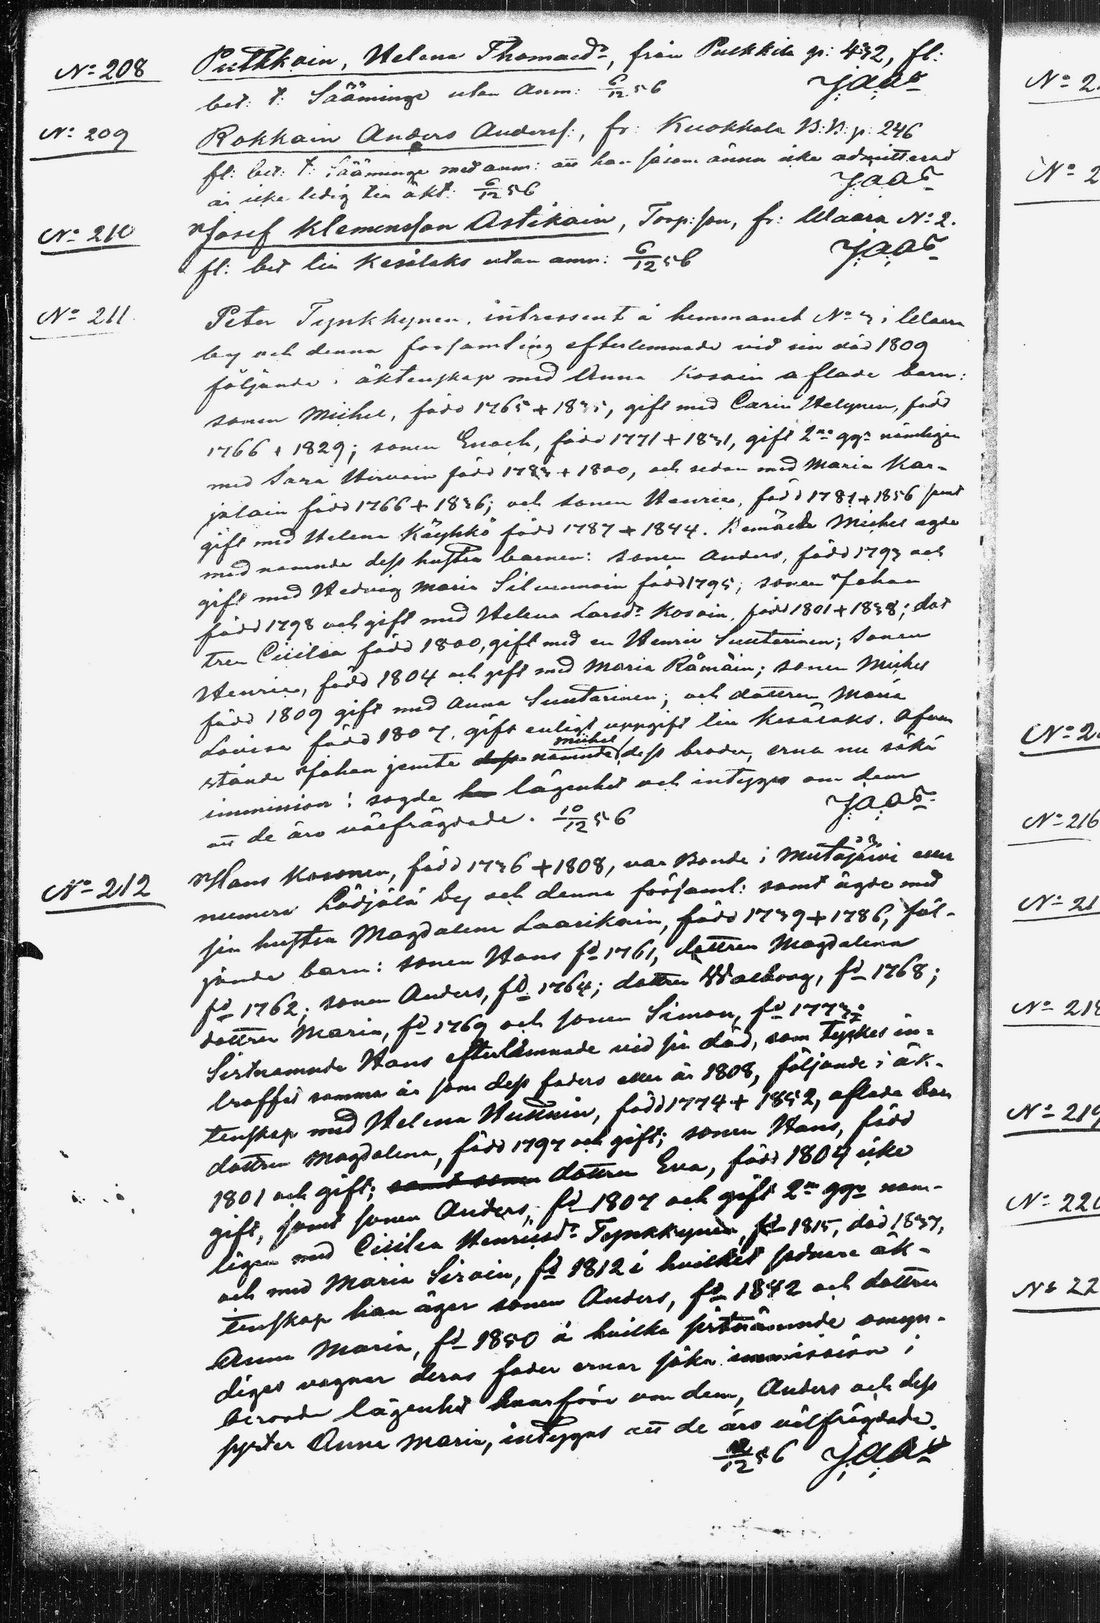 No 208 Putkkoin, Helena Thomasdr, från Pulkkila p: 432, fl:
bet: t: Sääminge utan anm: 6/12 56 J.A.A.S
No 209 Rokkain Anders Anderss:, fr: Kuokkala B.B: p: 246
fl: bet: t: Sääminge med anm: att han såsom ännu icke admitterad
är icke ledig till äkt: 6/12 56 J.A.A.S
No 210 Josef Klemensson Astikain, Torp:son, fr: Waara No 2.
fl: bet till Kesälaks utan anm: 6/12 56 J.A.A.S
No 211 Peter Tynkkynen, intressent å hemmanet No 3 i Waara
by och denna församling efterlemnade vid sin död 1809
följande i äktenskap med Anna Kosoin aflade barn:
sonen Michel, född 1765 + 1835, gift med Carin Helynen, född
1766 + 1829; sonen Enoch, född 1771 + 1831, gift 2ne ggr nämligen
med Sara Hirvoin född 1783 + 1800, och sedan med Maria Kar-
jalain född 1766 + 1836; och sonen Henric, född 1781 + 1856 samt
gift med Helena Käyhkö född 1787 + 1844. Bemälde Michel egde
med namnde dess hustru barnen: sonen Anders, född 1793 och
gift med Hedvig Maria Silvennoin född 1795; sonen Johan
född 1798 och gift med Helena Larsdr Kosoin, född 1801 + 1838; dot
tren Cicilia född 1800, gift med en Henric Suutarinen; sonen
Henric, född 1804 och gift med Maria Rämäin; sonen Michel
född 1809 gift med Anna Suutarinen; och dottren Maria
Lovisa född 1807, gift enligt uppgift till Kesälaks. Ofvan
stånde Johan jemte dess namnde Michel dess broder, erna nu söka
immission i sagde lägenhet och intygas om dem
att de äro välfrägdade. 10/12 56 J.A.A.S
No 212 Hans Kosonen, född 1736 + 1808, var Bonde i Mutajärvi eller
numera Lädjälä by och denna församl: samt ägde med
sin hustru Magdalena Laarikain, född 1739 + 1786, föl-
jande barn: sonen Hans fd 1761, dottren Magdalena
fd 1762; sonen Anders, fd 1764; dottren Walborg, fd 1768;
dottren Maria, fd 1769 och sonen Simon, fd 1773;
Sistnamnde Hans efterlämnade vid sin död, som tyckes in-
träffat samma år som dess faders eller år 1808, följande i äk-
tenskap med Helena Huttuin, född 1774 + 1852, aflade barn
dottren Magdalena, född 1797 och gift; sonen Hans, född
1801 och gift; samt sonen dottren Eva, född 1804 icke
gift, samt sonen Anders, fd 1807 och gift 2ne ggr näm-
ligen med Cicilia Henricsdr Tynkkynen, fd 1815, död 1837,
och med Maria Siroin, fd 1812 i hvilket sednare äk-
tenskap han äger sonen Anders, fd 1842 och dottren
Anna Maria, fd 1850 å hvilka sistnämnde omyn-
diges vegnar deras fader ernar söka immission i
berörde lägenhet hvarföre om dem, Anders och dess
syster Anna Maria, intygas att de äro välfrägdade.
12/12 56 J.A.A.S
No 2
No 2
No 2
No 216
No 21
No 218
No 219
No 220
No 22